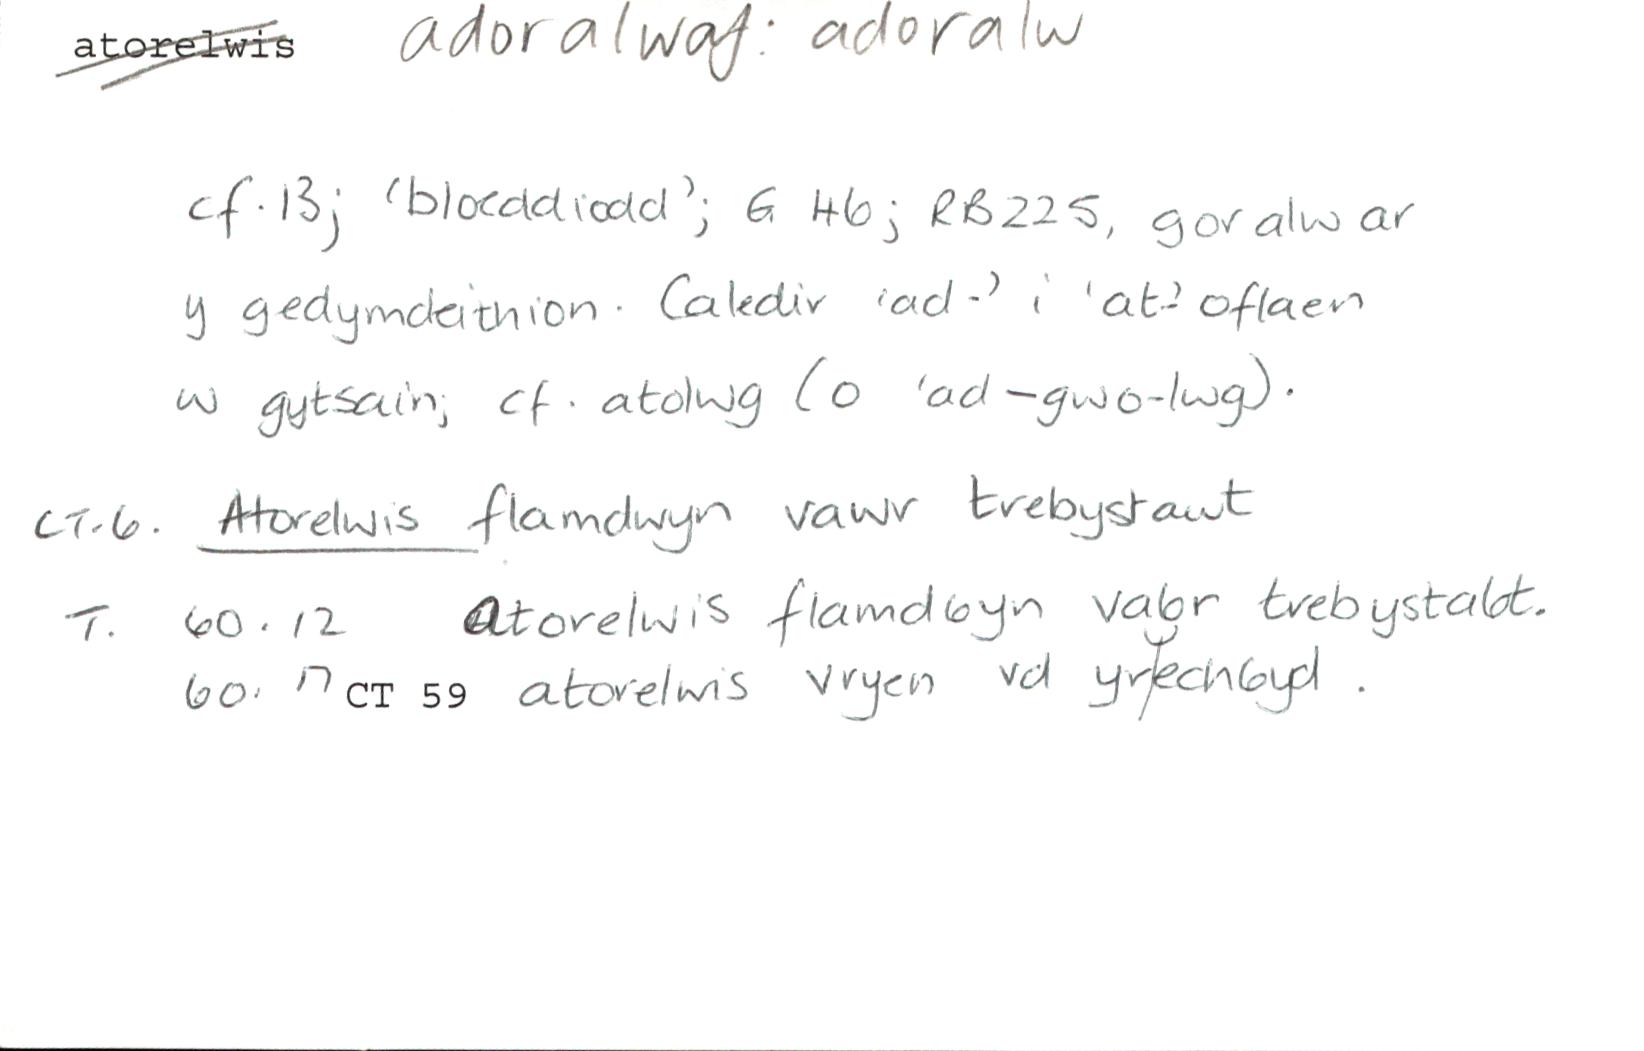 atorelwis adoralwaf: adoralw
cf. 13; 'bloeddiodd'; G 46; RB 225, goralw ar
y gedymdeithion. Caledir 'ad-' i 'at-' oflaen
w gytsain; cf. atolwg (o 'ad-gwo-lwg).
CT.6. Atorelwis flamdwyn vawr trebystawt
T. 60.12 atorelwis flamdỽyn vaỽr trebystaỽt.
60.17 CT 59 atorelwis vryen vd yr yechỽyd.